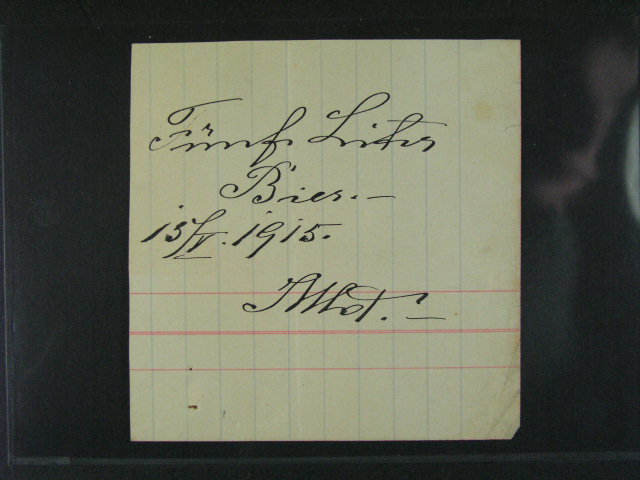 Fünf Liter
Bier.—
15/V. 1915.